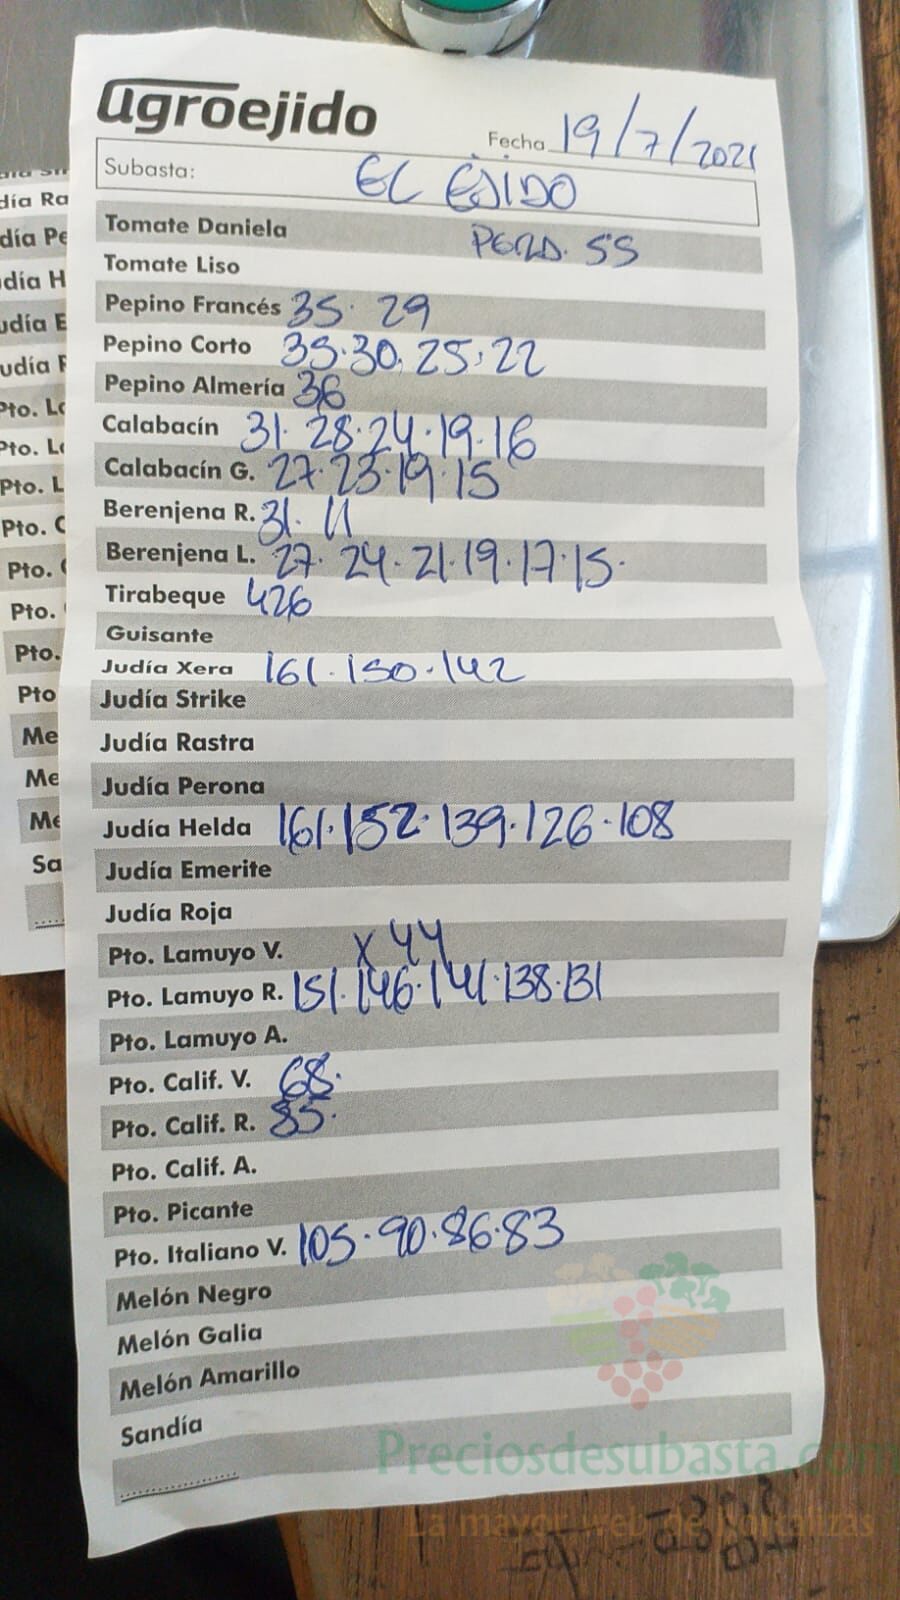 agroejido
Fecha 19/7/2021
Subasta: EL EJIDO
Tomate Daniela PERD. 55
Tomate Liso
Pepino Francés 35. 29
Pepino Corto 35.30.25.22
Pepino Almería 36
Calabacín 31.28.24.19.16
Calabacín G. 27.23.19.15
Berenjena R. 31. 11
Berenjena L. 27. 24.21.19.17.15.
Tirabeque 426
Guisante
Judía Xera 161.150.142
Judía Strike
Judía Rastra
Judía Perona
Judía Helda 161.152.139.126.108
Judía Emerite
Judía Roja
Pto. Lamuyo V. x 44
Pto. Lamuyo R. 151.146.141.138.131
Pto. Lamuyo A.
Pto. Calif. V. 68.
Pto. Calif. R. 85.
Pto. Calif. A.
Pto. Picante
Pto. Italiano V. 105.90.86.83
Melón Negro
Melón Galia
Melón Amarillo
Sandía
Preciosdesubasta.com
La mayor web de hortalizas
día Ra
día Pe
día H
udía E
udía F
Pto. Lo
Pto. L
Pto. L
Pto. C
Pto.
Pto.
Pto.
Pto
Me
Me
Me
Sa